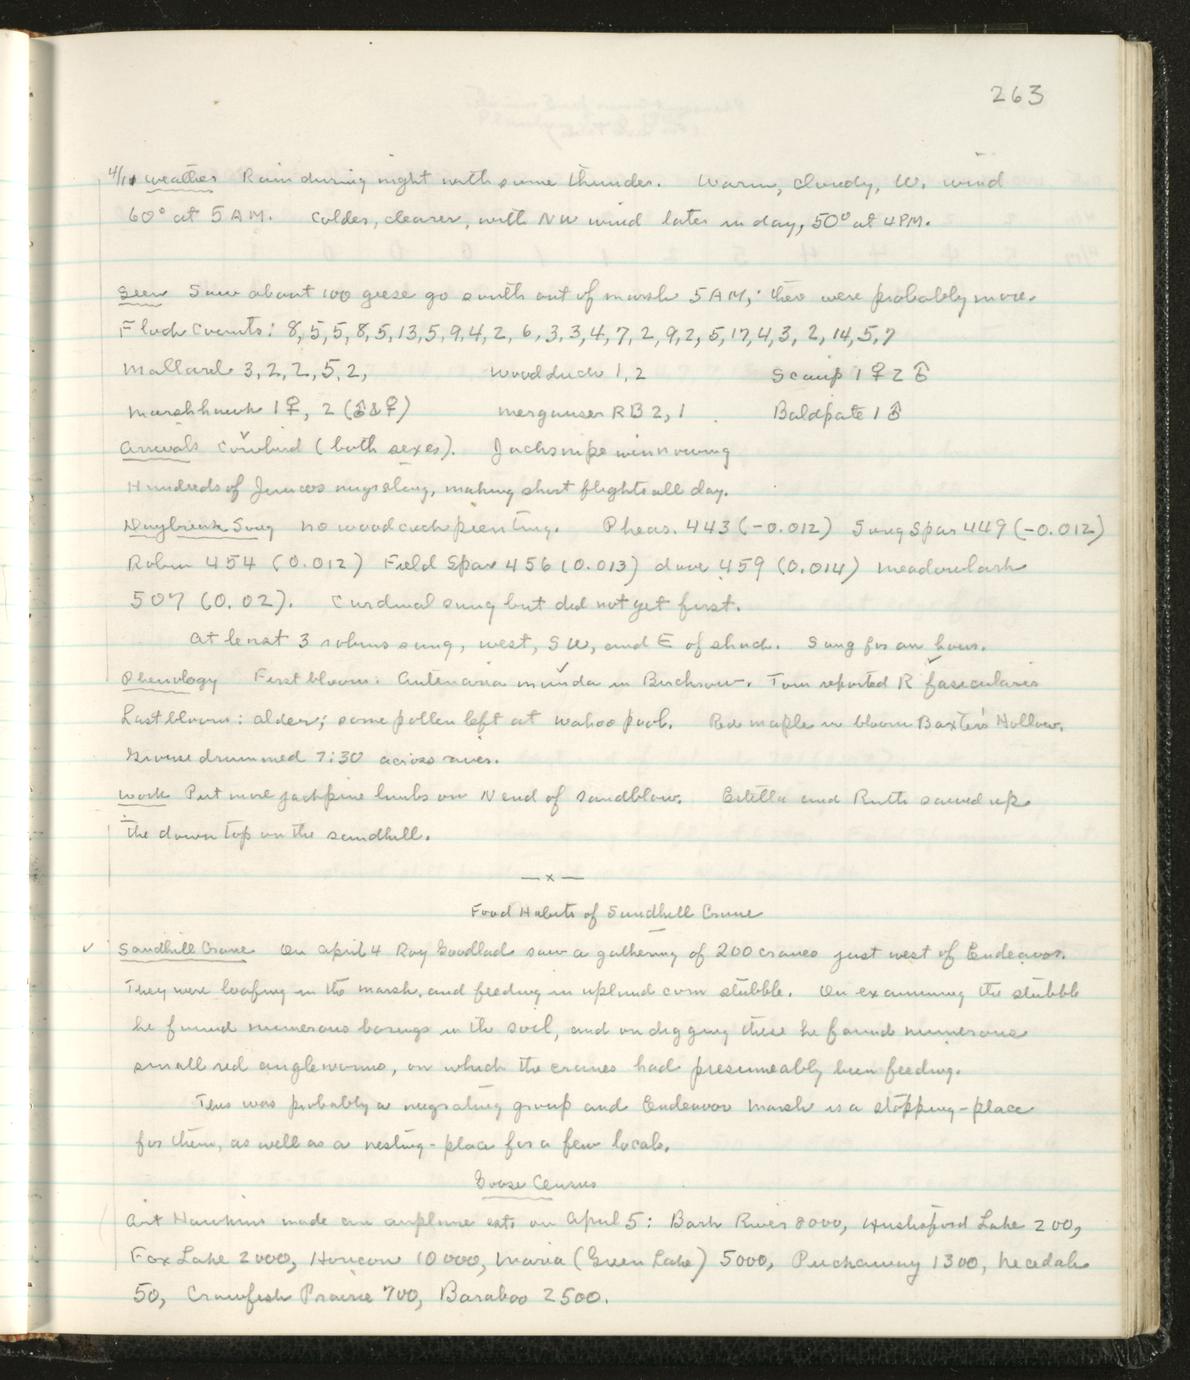 263
4/11 weather Rain during night with some thunder. Warm, cloudy, W. wind
60° at 5 AM. Colder, clearer, with NW wind later in day, 50° at 4 PM.
Seen Saw about 100 geese go south out of marsh 5 AM; ther were probably more.
Flock Counts: 8, 5, 5, 8, 5, 13, 5, 9, 4, 2, 6, 3, 3, 4, 7, 2, 9, 2, 5, 17, 4, 3, 2, 14, 5, 7
Mallard 3, 2, 2, 5, 2, Woodduck 1, 2 Scaup 1 ♀ 2 ♂
Marshhawk 1 ♀, 2 (♂ & ♀) Merganser RB 2, 1 Baldpate 1 ♂
Arrivals Cowbird (both sexes). Jacksnipe winnowing
Hundreds of Juncos migrating, making short flights all day.
Daybreak Song No woodcock peenting. Pheas. 443 (-0.012) Song Spar 449 (-0.012)
Robin 454 (0.012) Field Spar 456 (0.013) dove 459 (0.014) meadowlark
507 (0.02). Cardinal sung but did not get first.
At least 3 robins sung, west, SW, and E of shack. Sang for an hour.
Phenology First bloom: Antenaria in Birchrow. Tom reported R fascicularis
Last bloom: alder; some pollen left at wahoo pool. Red maple in bloom Baxter's Hollow.
Grouse drummed 7:30 across river.
Work Put more jackpine limbs on N end of sandblow. Estella and Ruth sawed up
the down top on the sandhill.
—x—
Food Habits of Sandhill Crane
✓ Sandhill Crane On April 4 Roy Goodlad saw a gathering of 200 cranes just west of Endeavor.
They were loafing in the marsh, and feeding in upland corn stubble. On examining the stubble
he found numerous borings in the soil, and on digging these he found numerous
small red angleworms, on which the cranes had presumeably been feeding.
This was probably a migrating group and Endeavor Marsh is a stopping-place
for them, as well as a nesting-place for a few locals.
Goose Census
Art Hawkins made an airplane ests on April 5: Bark River 8000, Hustisford Lake 200,
Fox Lake 2000, Horicon 10000, Maria (Green Lake) 5000, Puckaway 1300, Necedah
50, Crawfish Prairie 700, Baraboo 2500.